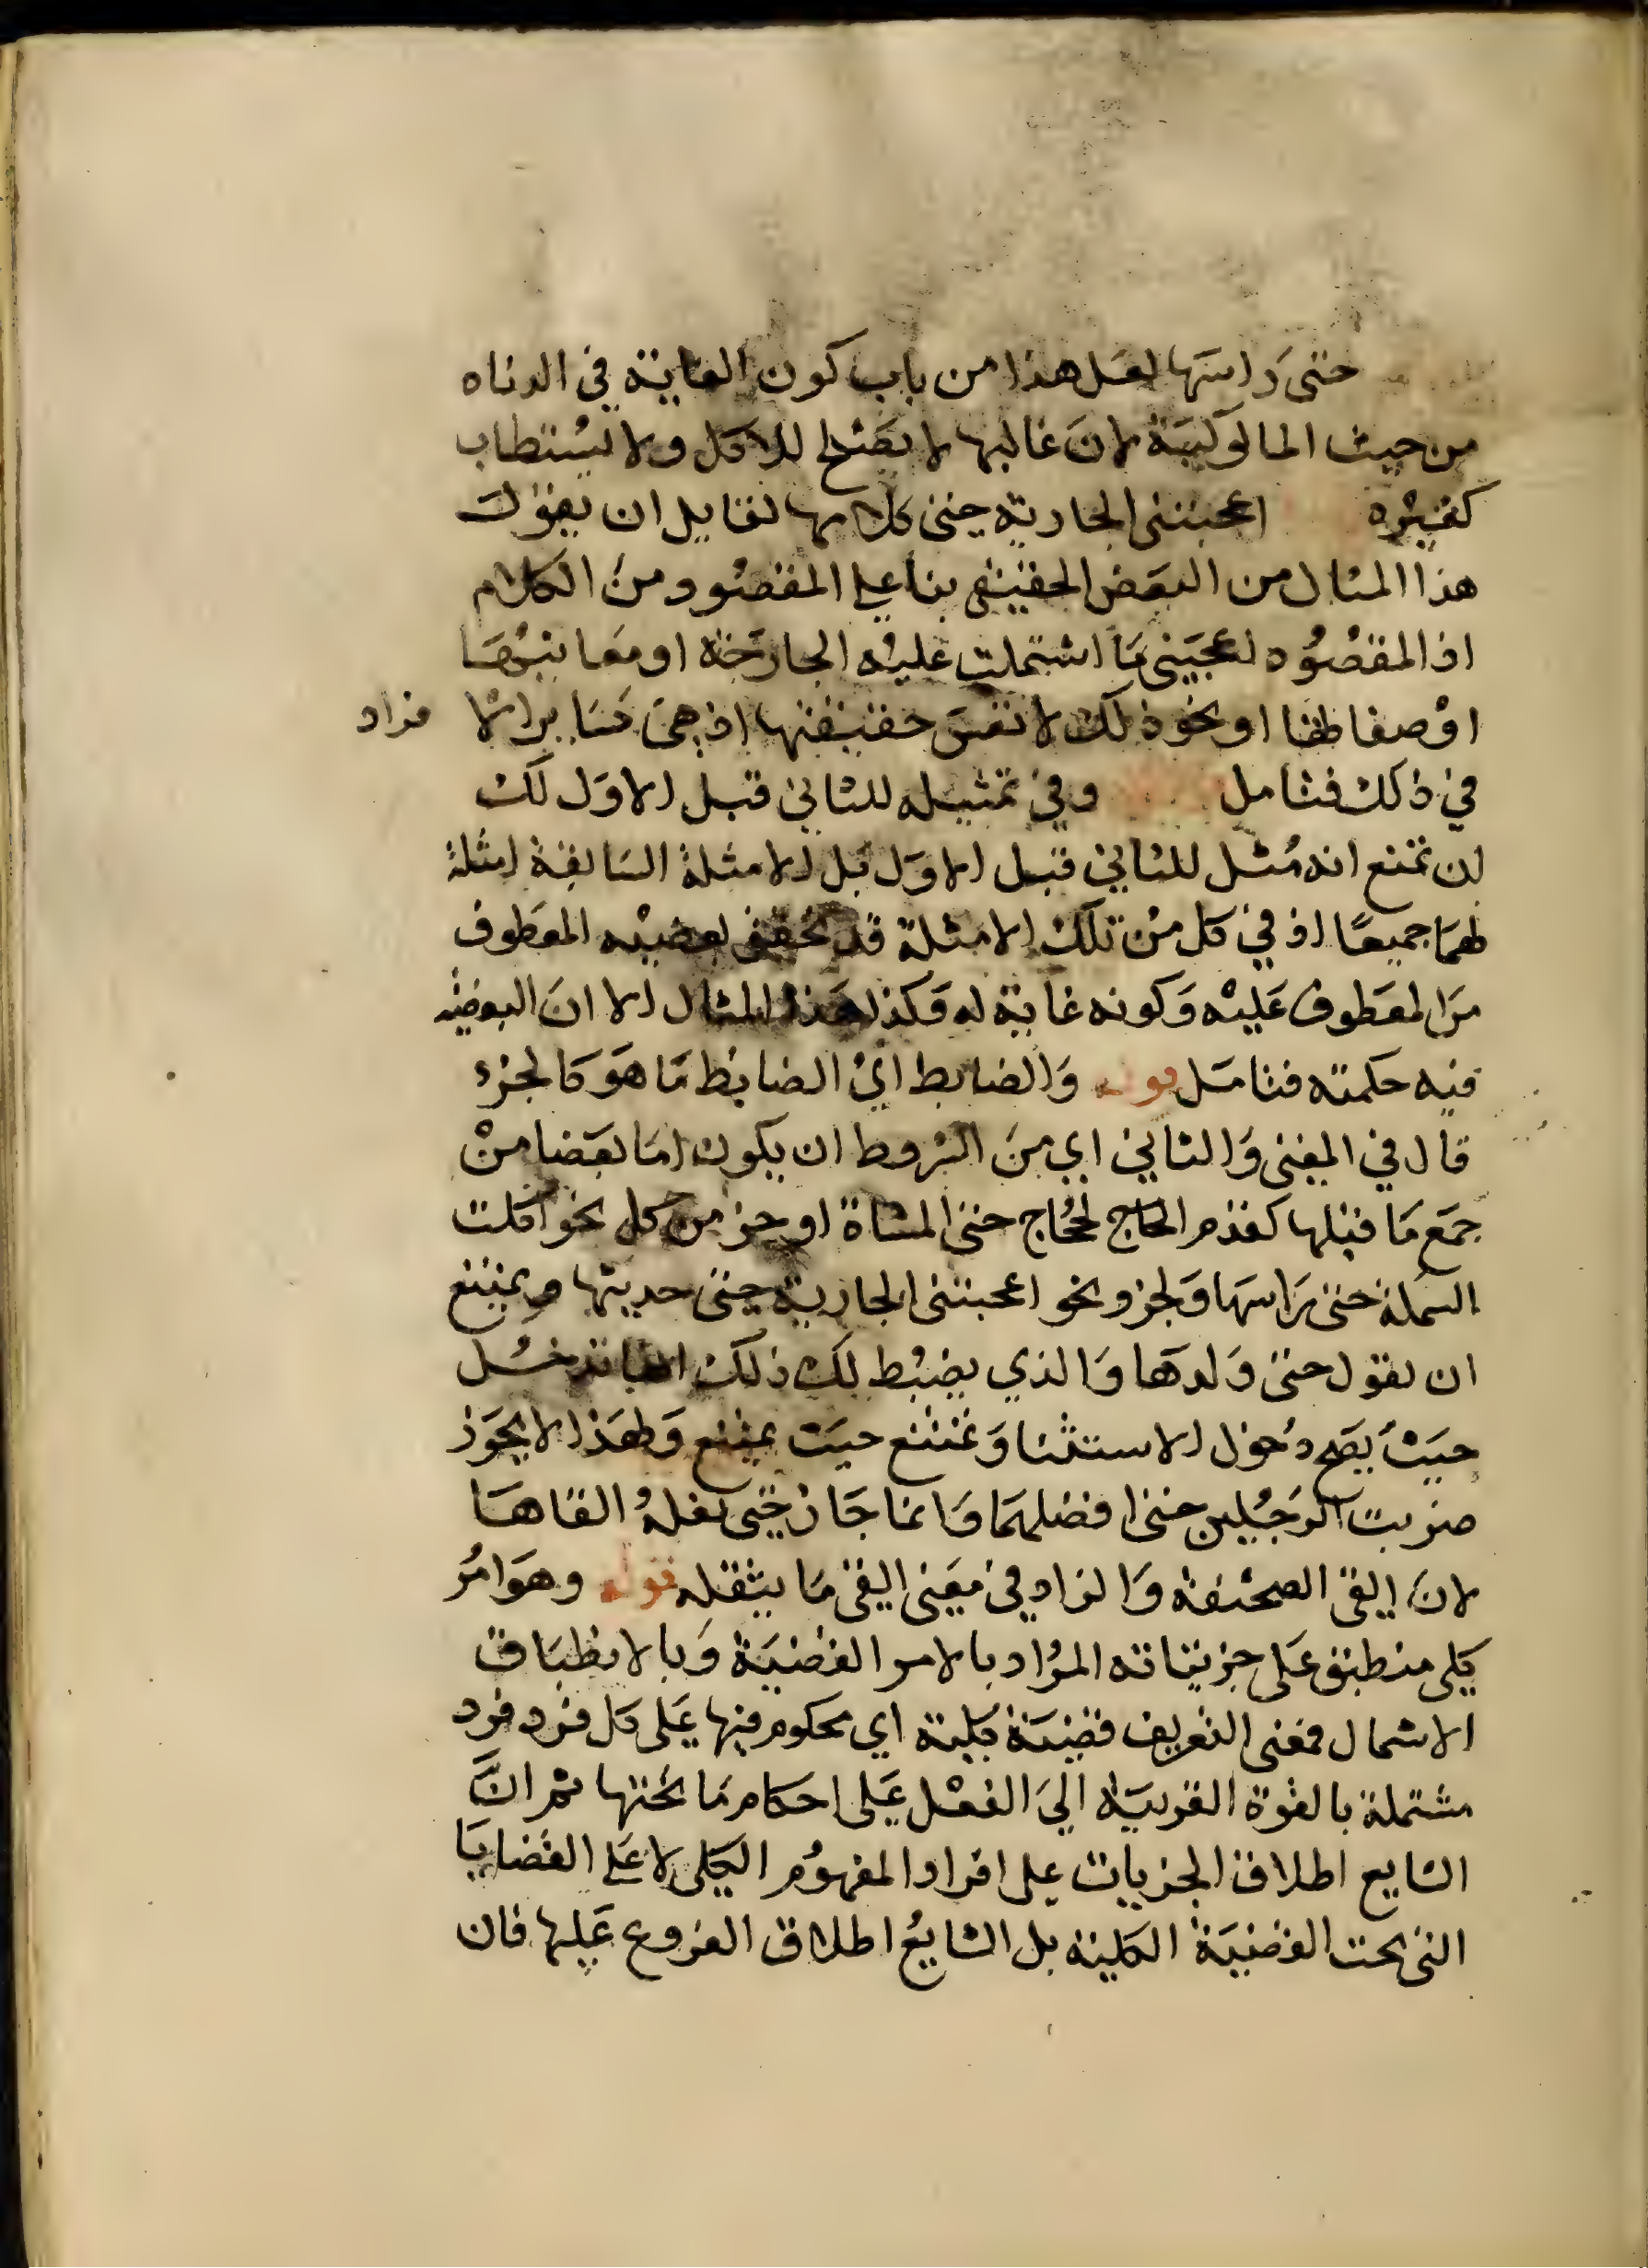 حتى راسها لعل هذا من باب كون الغاية في الدناه
من حيث المالوكية لان غالبها لا يصلح للاكل ولا يستطاب
كغيره اعجبتنى الجارية حتى كلامها لقايل ان يقول
هذا المثال من البعض الحقيقى بنا على المقصود من الكلام
اذ المقصود اعجبنى ما اشتملت عليه الجارحة او معانيها
او صفاطها او نحو ذلك لا نفس حقيقتها اذ هى كساير امثلا مزاد
في ذلك فتامل وفي تمثيله للثاني قبل الاول لك
ان تمنع انه مثل للثاني قبل الاول بل الامثلة السالفة امثلة
لهما جميعا اذ في كل من تلك الامثلة قد تحقق بعضيه المعطوف
من المعطوف عليه وكونه غاية له وكذا هذا المثال الا ان البعضيه
فيه حكمته فتامل قوله والضابط اي الضابط ما هو كالجزء
قال في المغنى والثاني اي من الشروط ان يكون اما بعضا من
جمع ما قبلها كقدم الحاج لحجاج حتى المشاة او جز من كل نحو اكلت
السمكة حتى راسها وكجز ونحو اعجبتنى الجارية حتى حديثها ويمتنع
ان يقول حتى ولدها والذي يضبط لك ذلك انها تدخل
حيث يصح دخول الاستثنا وتمتنع حيث يمتنع ولهذا لا يجوز
ضربت الرجلين حتى افضلهما وانما جاز حتى نعله القاها
لان القى الصحيفة والزاد في معنى القى ما يثقله قوله وهو امر
كلى منطبق على جزيياته المراد بالامر القضية وبالانطباق
الاشمال فمعنى التعريف قضية كلية اي محكوم فيها على كل فرد فرد
مشتملة بالقوة القريبة الي الفعل على احكام ما تحتها ثم ان
الشايع اطلاق الجزيات على افراد المفهوم الكلى لا على القضايا
التى تحت القضية الكلية بل الشايع اطلاق الفروع عليها فان